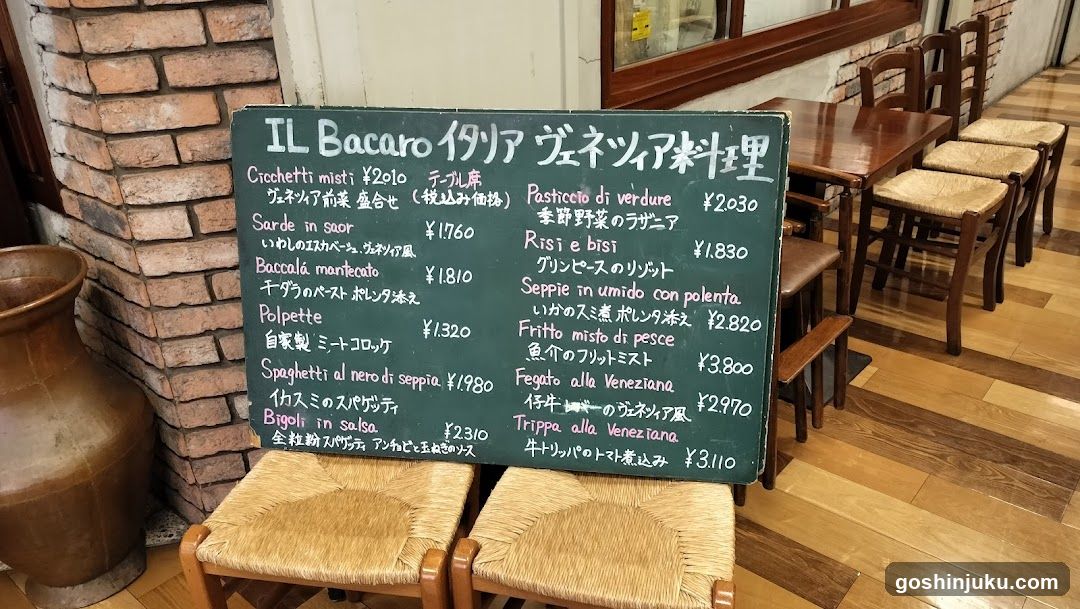 IL Bacaro イタリア ヴェネツィア料理
Cicchetti misti ¥2010 テーブル席
ヴェネツィア前菜 盛合せ (税込み価格)
Sarde in saor ¥1.760
いわしのエスカベーシュ、ヴェネツィア風
Baccalá mantecato ¥1.810
干ダラのペースト ポレンタ添え
Polpette ¥1.320
自家製 ミートコロッケ
Spaghetti al nero di seppia ¥1.980
イカスミのスパゲッティ
Bigoli in salsa ¥2310
全粒粉スパゲッティ アンチョビと玉ねぎのソース
Pasticcio di verdure ¥2.030
季節野菜のラザニア
Risi e bisi ¥1.830
グリンピースのリゾット
Seppie in umido con polenta
いかのスミ煮 ポレンタ添え ¥2.820
Fritto misto di pesce
魚介のフリットミスト ¥3.800
Fegato alla Veneziana
仔牛 のヴェネツィア風 ¥2.970
Trippa alla Veneziana
牛トリッパのトマト煮込み ¥3.110
goshinjuku.com